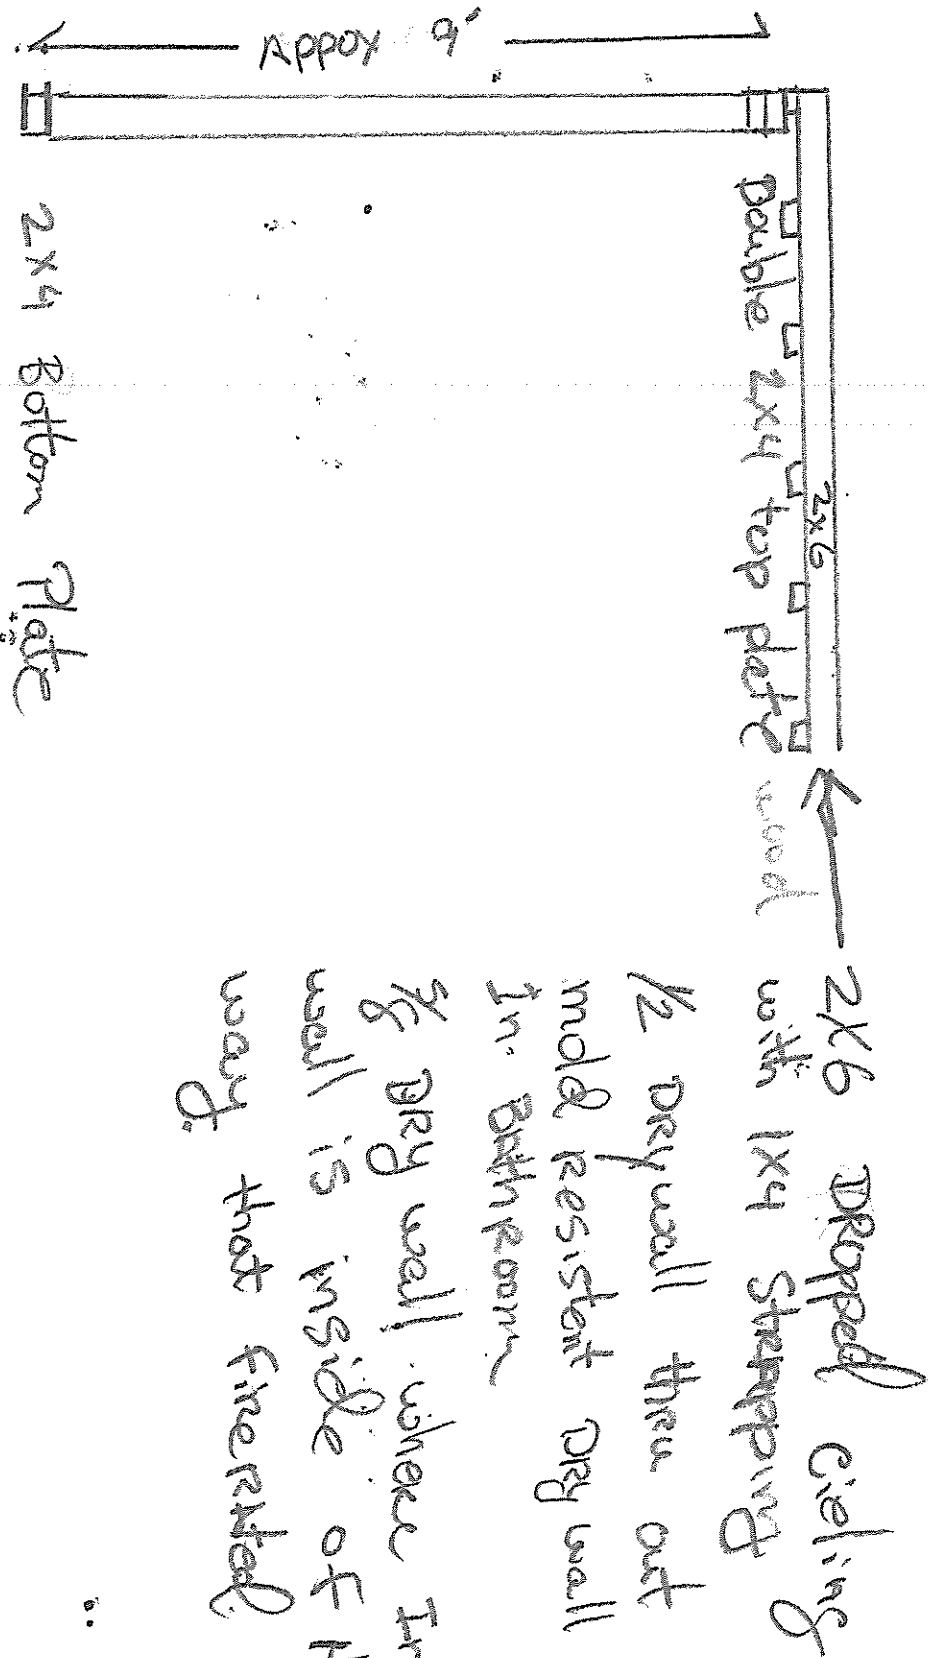 Appox 9'
Double 2x4 top plate
2x6
wood
2x4 Bottom Plate
2x6 DRopped Cieling
with 1x4 StRApping
1/2 DRywall thru out
mold Resistent DRywall
In BAthRoom
5/8 DRywall where
wall is inside of
way. that fiRe RAted.